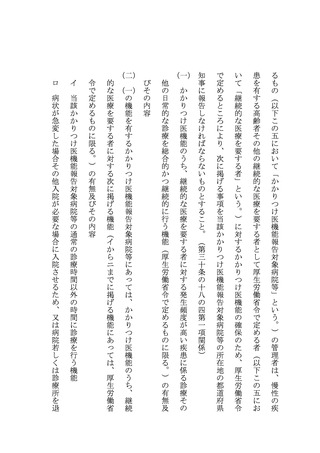 るもの（以下この五において「かかりつけ医機能報告対象病院等」という。）の管理者は、慢性の疾
患を有する高齢者その他の継続的な医療を要する者として厚生労働省令で定める者（以下この五にお
いて「継続的な医療を要する者」という。）に対するかかりつけ医機能の確保のため、厚生労働省令
で定めるところにより、次に掲げる事項を当該かかりつけ医機能報告対象病院等の所在地の都道府県
知事に報告しなければならないものとすること。（第三十条の十八の四第一項関係）
㈠　かかりつけ医機能のうち、継続的な医療を要する者に対する発生頻度が高い疾患に係る診療その
他の日常的な診療を総合的かつ継続的に行う機能（厚生労働省令で定めるものに限る。）の有無及
びその内容
㈡　㈠の機能を有するかかりつけ医機能報告対象病院等にあっては、かかりつけ医機能のうち、継続
的な医療を要する者に対する次に掲げる機能（イからニまでに掲げる機能にあっては、厚生労働省
令で定めるものに限る。）の有無及びその内容
イ　当該かかりつけ医機能報告対象病院等の通常の診療時間以外の時間に診療を行う機能
ロ　病状が急変した場合その他入院が必要な場合に入院させるため、又は病院若しくは診療所を退